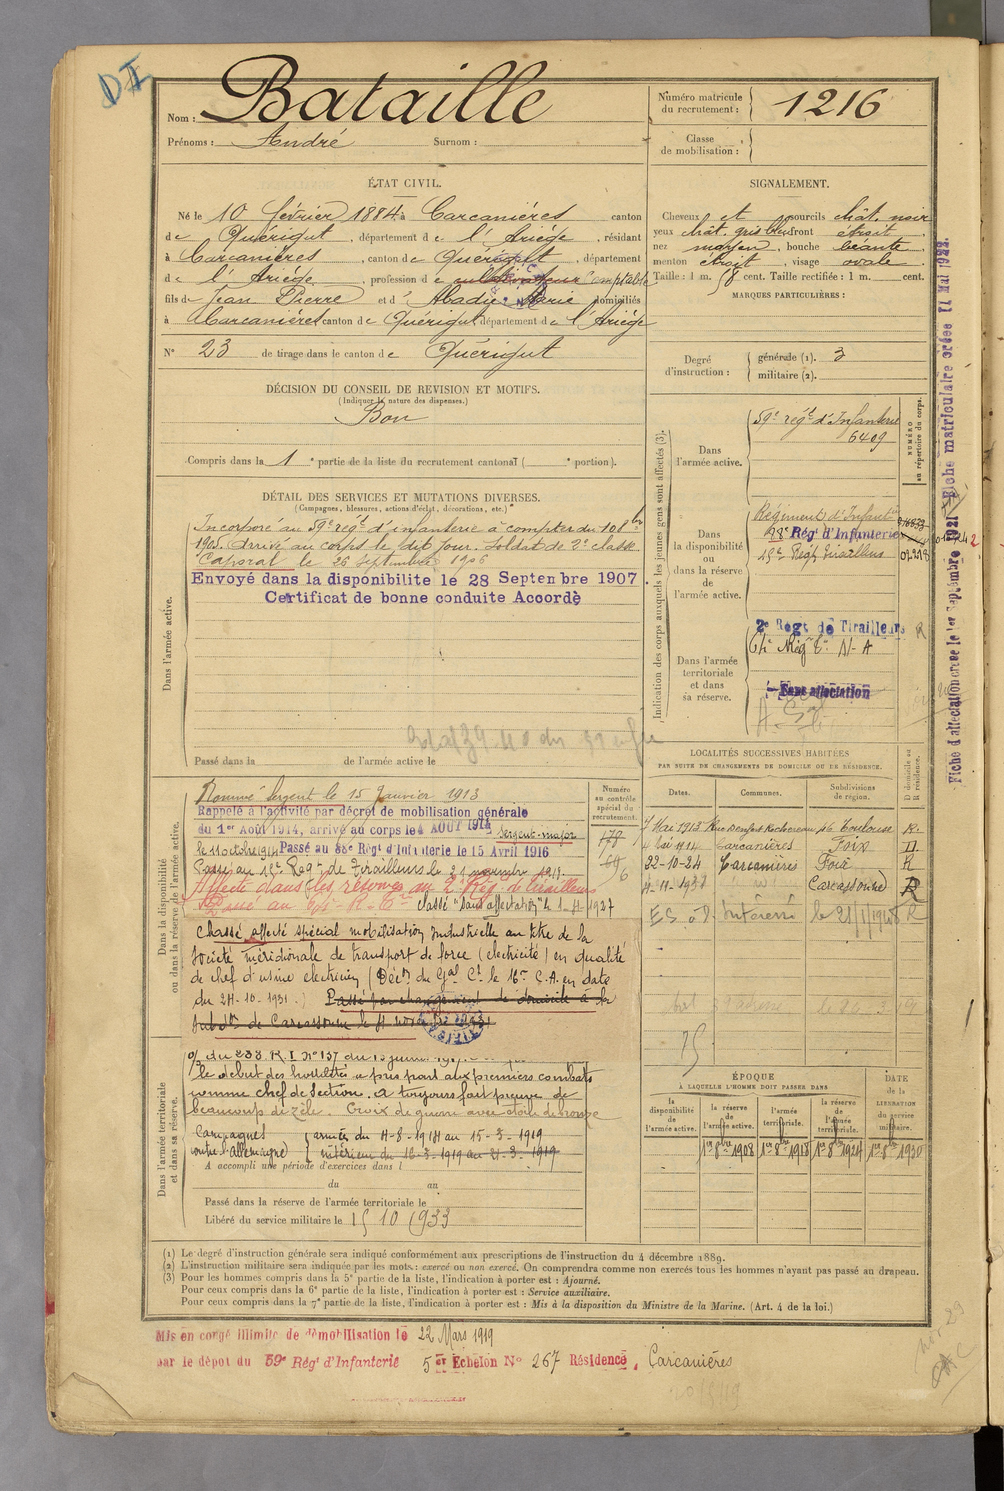 DI
Nom : Bataille
Prénoms : André Surnom :
Numéro matricule du recrutement : 1216
Classe de mobilisation :
ÉTAT CIVIL.
Né le 10 février 1884 à Carcanières canton
de Quérigut, département de l'Ariège, résidant
à Carcanières, canton de Quérigut, département
de l'Ariège, profession de cultivateur Comptable
fils de Jean Pierre et de Abadie Marie domiciliés
à Carcanières canton de Quérigut département de l'Ariège
N° 23 de tirage dans le canton de Quérigut
SIGNALEMENT.
Cheveux et sourcils chât. noir
yeux chât. gris bleu front étroit
nez moyen, bouche béante
menton étroit, visage ovale
Taille : 1 m. 58 cent. Taille rectifiée : 1 m. cent.
MARQUES PARTICULIÈRES :
Degré d'instruction : générale (1). 3
militaire (2).
DÉCISION DU CONSEIL DE REVISION ET MOTIFS.
(Indiquer la nature des dispenses.)
Bon
Compris dans la 1e partie de la liste du recrutement cantonal ( e portion).
DÉTAIL DES SERVICES ET MUTATIONS DIVERSES.
(Campagnes, blessures, actions d'éclat, décorations, etc.)
Dans l'armée active.
Incorporé au 59e régt d'infanterie à compter du 10 8bre
1905. Arrivé au corps le dit jour. Soldat de 2e classe
Caporal le 26 Septembre 1906
Envoyé dans la disponibilite le 28 Septenbre 1907
Certificat de bonne conduite Accordè
Passé dans la de l'armée active le
Indication des corps auxquels les jeunes gens sont affectés (3).
NUMÉRO au répertoire du corps.
Dans l'armée active.
59e régt d'Infanterie
6409
Dans la disponibilité ou dans la réserve de l'armée active.
Régiment d'Infantie
Rég' d'Infanterie
15e Régt Tirailleurs
Dans l'armée territoriale et dans sa réserve.
2e Regt de Tirailleurs
Sans affectation
Fiche d'affectation créée le 1er Septembre 1921
Fiche matriculaire créée 11 Mai 1922.
Dans la disponibilité ou dans la réserve de l'armée active.
Nommé Sergent le 15 Janvier 1913
Rappelé à l'activité par décret de mobilisation générale
du 1er Août 1914, arrivé au corps le 4 AOUT 1914 Sergent-major
le 11 octobre 1914 Passé au 88e Rég' d'Infanterie le 15 Avril 1916
Passé au 15e Régt de Tirailleurs le 21 novembre 191
Affecté dans les réserves au 2e Rég. de tirailleurs
Classé "Sans affectation" le 1-4-1927
Classé affecté spécial mobilisation industrielle au titre de la
Société méridionale de transport de force (électricité) en qualité
de chef d'usine électricien (Décon du Gal Ct le 16e C.A. en date
du 24-10-1931.) Passé par changement de domicile à la
Subdon de Carcassonne le 4 novembre 1931
Numéro au contrôle spécial du recrutement.
178
LOCALITÉS SUCCESSIVES HABITÉES
PAR SUITE DE CHANGEMENTS DE DOMICILE OU DE RÉSIDENCE.
Dates. Communes. Subdivisions de région. D domicile ou R résidence.
7 Mai 1913 Rue Denfert Rochereau 46 Toulouse R.
Mai 1914 Carcanières Foix D
22-10-24 Carcanières Foix R
4-11-1931 Carcassonne R
Dans l'armée territoriale et dans sa réserve.
o/ du 288 R.I. N° 137 du
le début des hostilités a pris part aux premiers combats
comme chef de Section. A toujours fait preuve de
beaucoup de zèle. Croix de guerre avec étoile de bronze
Campagnes armées du 4-8-1914 au 15-3-1919
contre l'allemagne intérieur du 16-3-1919 au 21-3-1919
A accompli une période d'exercices dans l
du au
Passé dans la réserve de l'armée territoriale le
Libéré du service militaire le 15 10 1933
ÉPOQUE
À LAQUELLE L'HOMME DOIT PASSER DANS
DATE de la LIBÉRATION du service militaire.
la disponibilité de l'armée active. la réserve de l'armée active. l'armée territoriale. la réserve de l'armée territoriale.
1er 8bre 1908 1er 8bre 1918 1er 8bre 1924 1er 8bre 1930
(1) Le degré d'instruction générale sera indiqué conformément aux prescriptions de l'instruction du 4 décembre 1889.
(2) L'instruction militaire sera indiquée par les mots : exercé ou non exercé. On comprendra comme non exercés tous les hommes n'ayant pas passé au drapeau.
(3) Pour les hommes compris dans la 5e partie de la liste, l'indication à porter est : Ajourné.
Pour ceux compris dans la 6e partie de la liste, l'indication à porter est : Service auxiliaire.
Pour ceux compris dans la 7e partie de la liste, l'indication à porter est : Mis à la disposition du Ministre de la Marine. (Art. 4 de la loi.)
Mis en congé illimité de démobilisation le 22 Mars 1919
par le dépot du 59e Rég' d'Infanterie 5er Echelon N° 267 Résidence, Carcanières